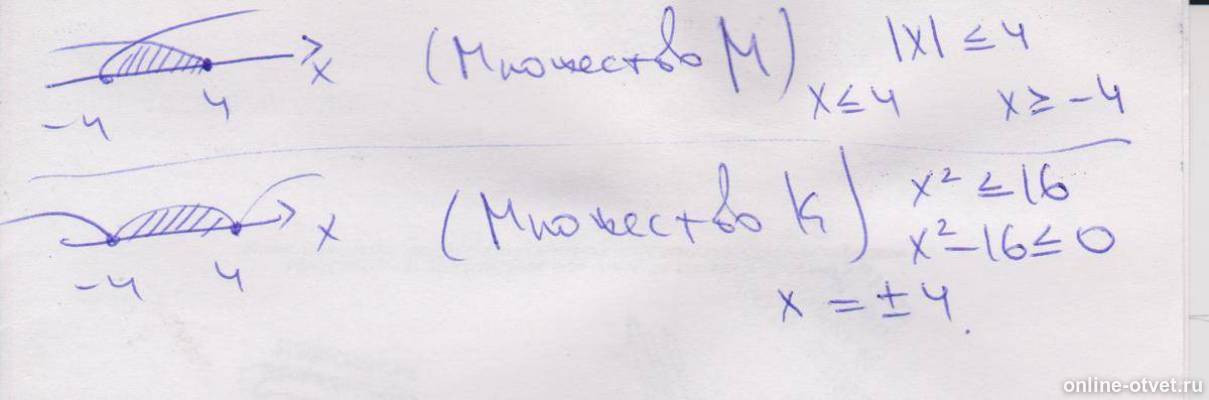 x (Множество М) |x| ≤ 4
-4 4 x ≤ 4 x ≥ -4
x (Множество К) x² ≤ 16
-4 4 x² - 16 ≤ 0
x = ± 4.
online-otvet.ru